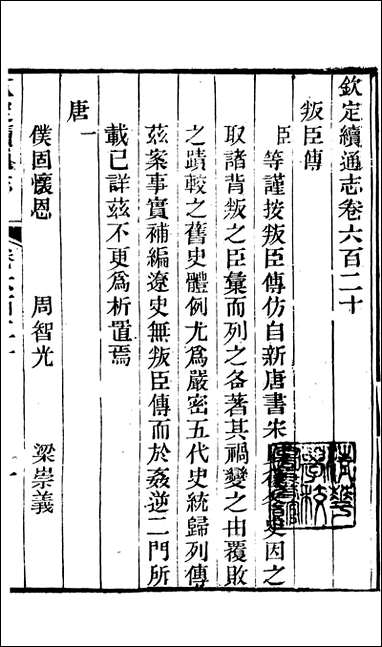 欽定續通志卷六百二十
叛臣傳
臣等謹按叛臣傳仿自新唐書宋史因之
取諸背叛之臣彙而列之各著其禍變之由覆敗
之蹟較之舊史體例尤爲嚴密五代史統歸列傳
茲案事實補編遼史無叛臣傳而於姦逆二門所
載已詳茲不更爲析置焉
唐一
僕固懷恩 周智光 梁崇義